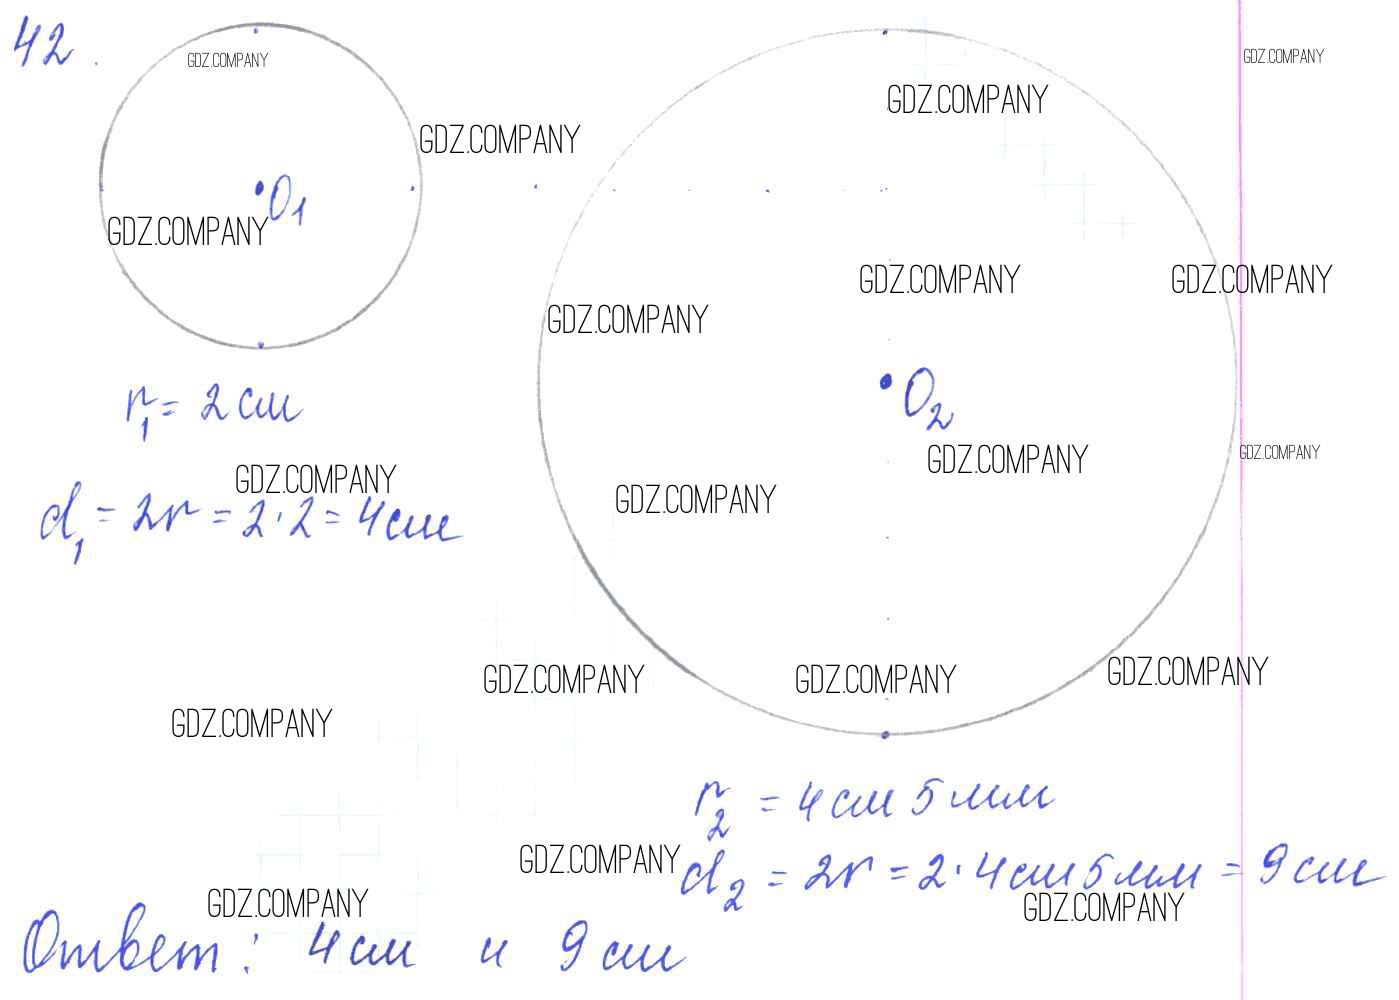 42.
GDZ.COMPANY
GDZ.COMPANY
GDZ.COMPANY
GDZ.COMPANY
O₁
GDZ.COMPANY
GDZ.COMPANY
GDZ.COMPANY
GDZ.COMPANY
O₂
r₁ = 2 см
GDZ.COMPANY
GDZ.COMPANY
GDZ.COMPANY
GDZ.COMPANY
d₁ = 2r = 2·2 = 4 см
GDZ.COMPANY
GDZ.COMPANY
GDZ.COMPANY
GDZ.COMPANY
r₂ = 4 см 5 мм
GDZ.COMPANY
d₂ = 2r = 2·4 см 5 мм = 9 см
GDZ.COMPANY
GDZ.COMPANY
Ответ: 4 см и 9 см